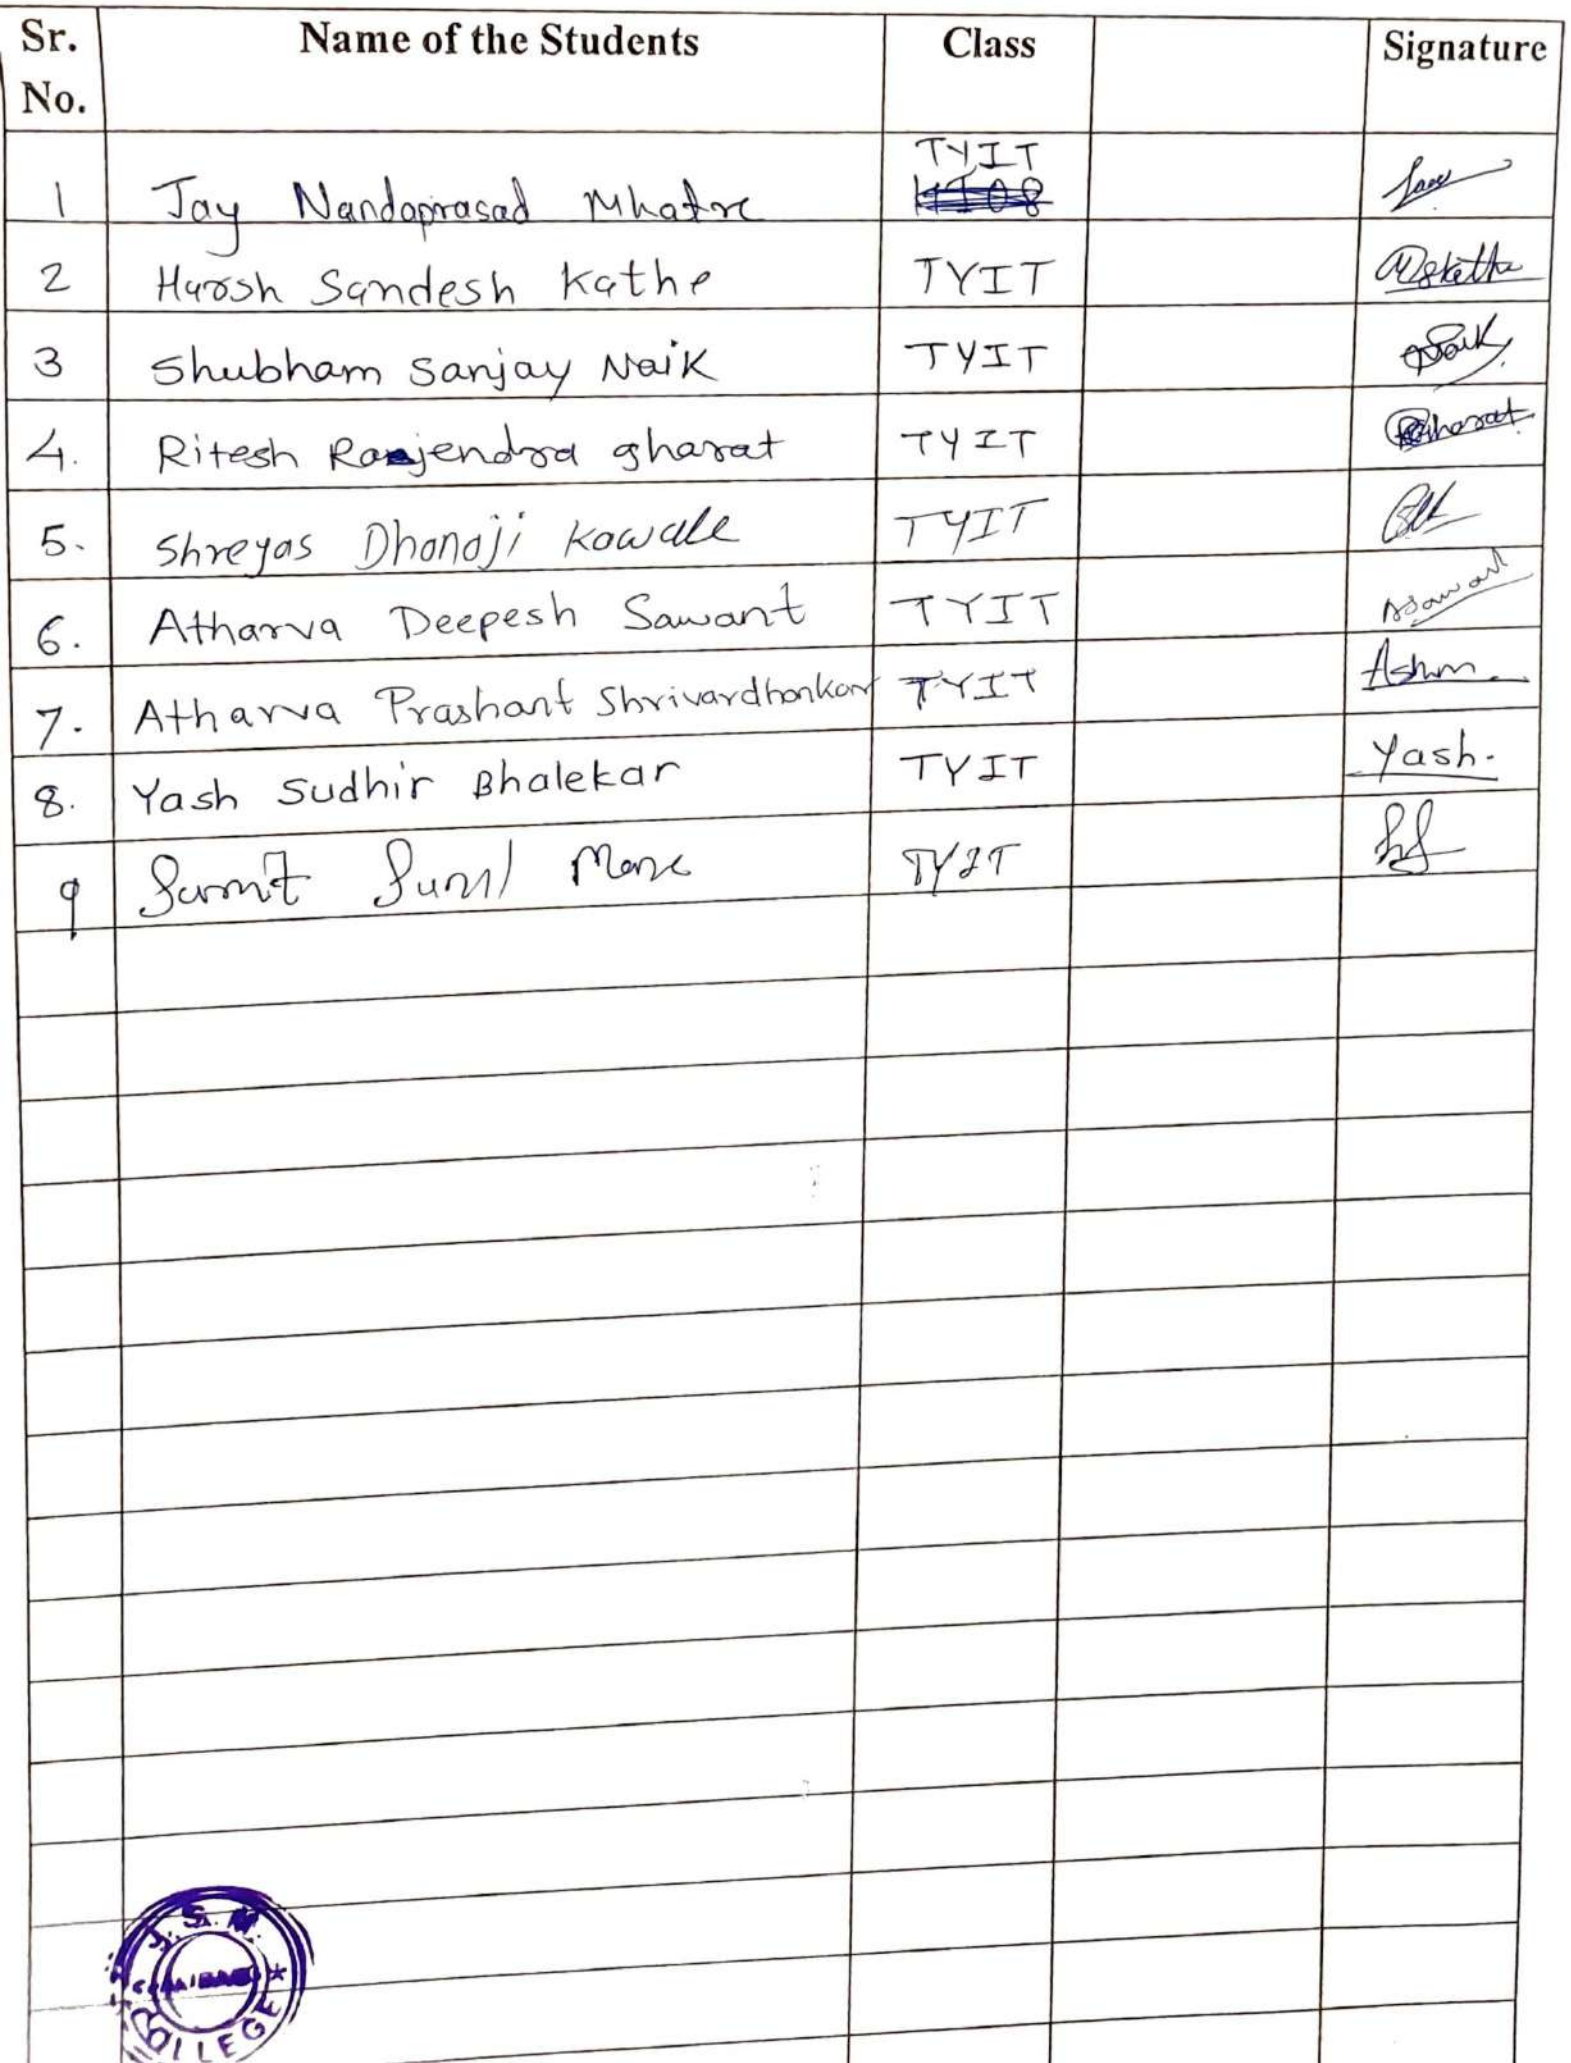 Sr. No. Name of the Students Class Signature
TYIT
1 Jay Nandaprasad Mhatre
2 Harsh Sandesh Kathe TYIT
3 Shubham Sanjay Naik TYIT Naik
4. Ritesh Rajendra gharat TYIT Gharat
5. Shreyas Dhanaji Kawale TYIT
6. Atharva Deepesh Sawant TYIT ASawant
7. Atharva Prashant Shrivardhankar TYIT
8. Yash Sudhir Bhalekar TYIT Yash.
9 Sumit Sunil Mane TYIT
J.S.M
COLLEGE